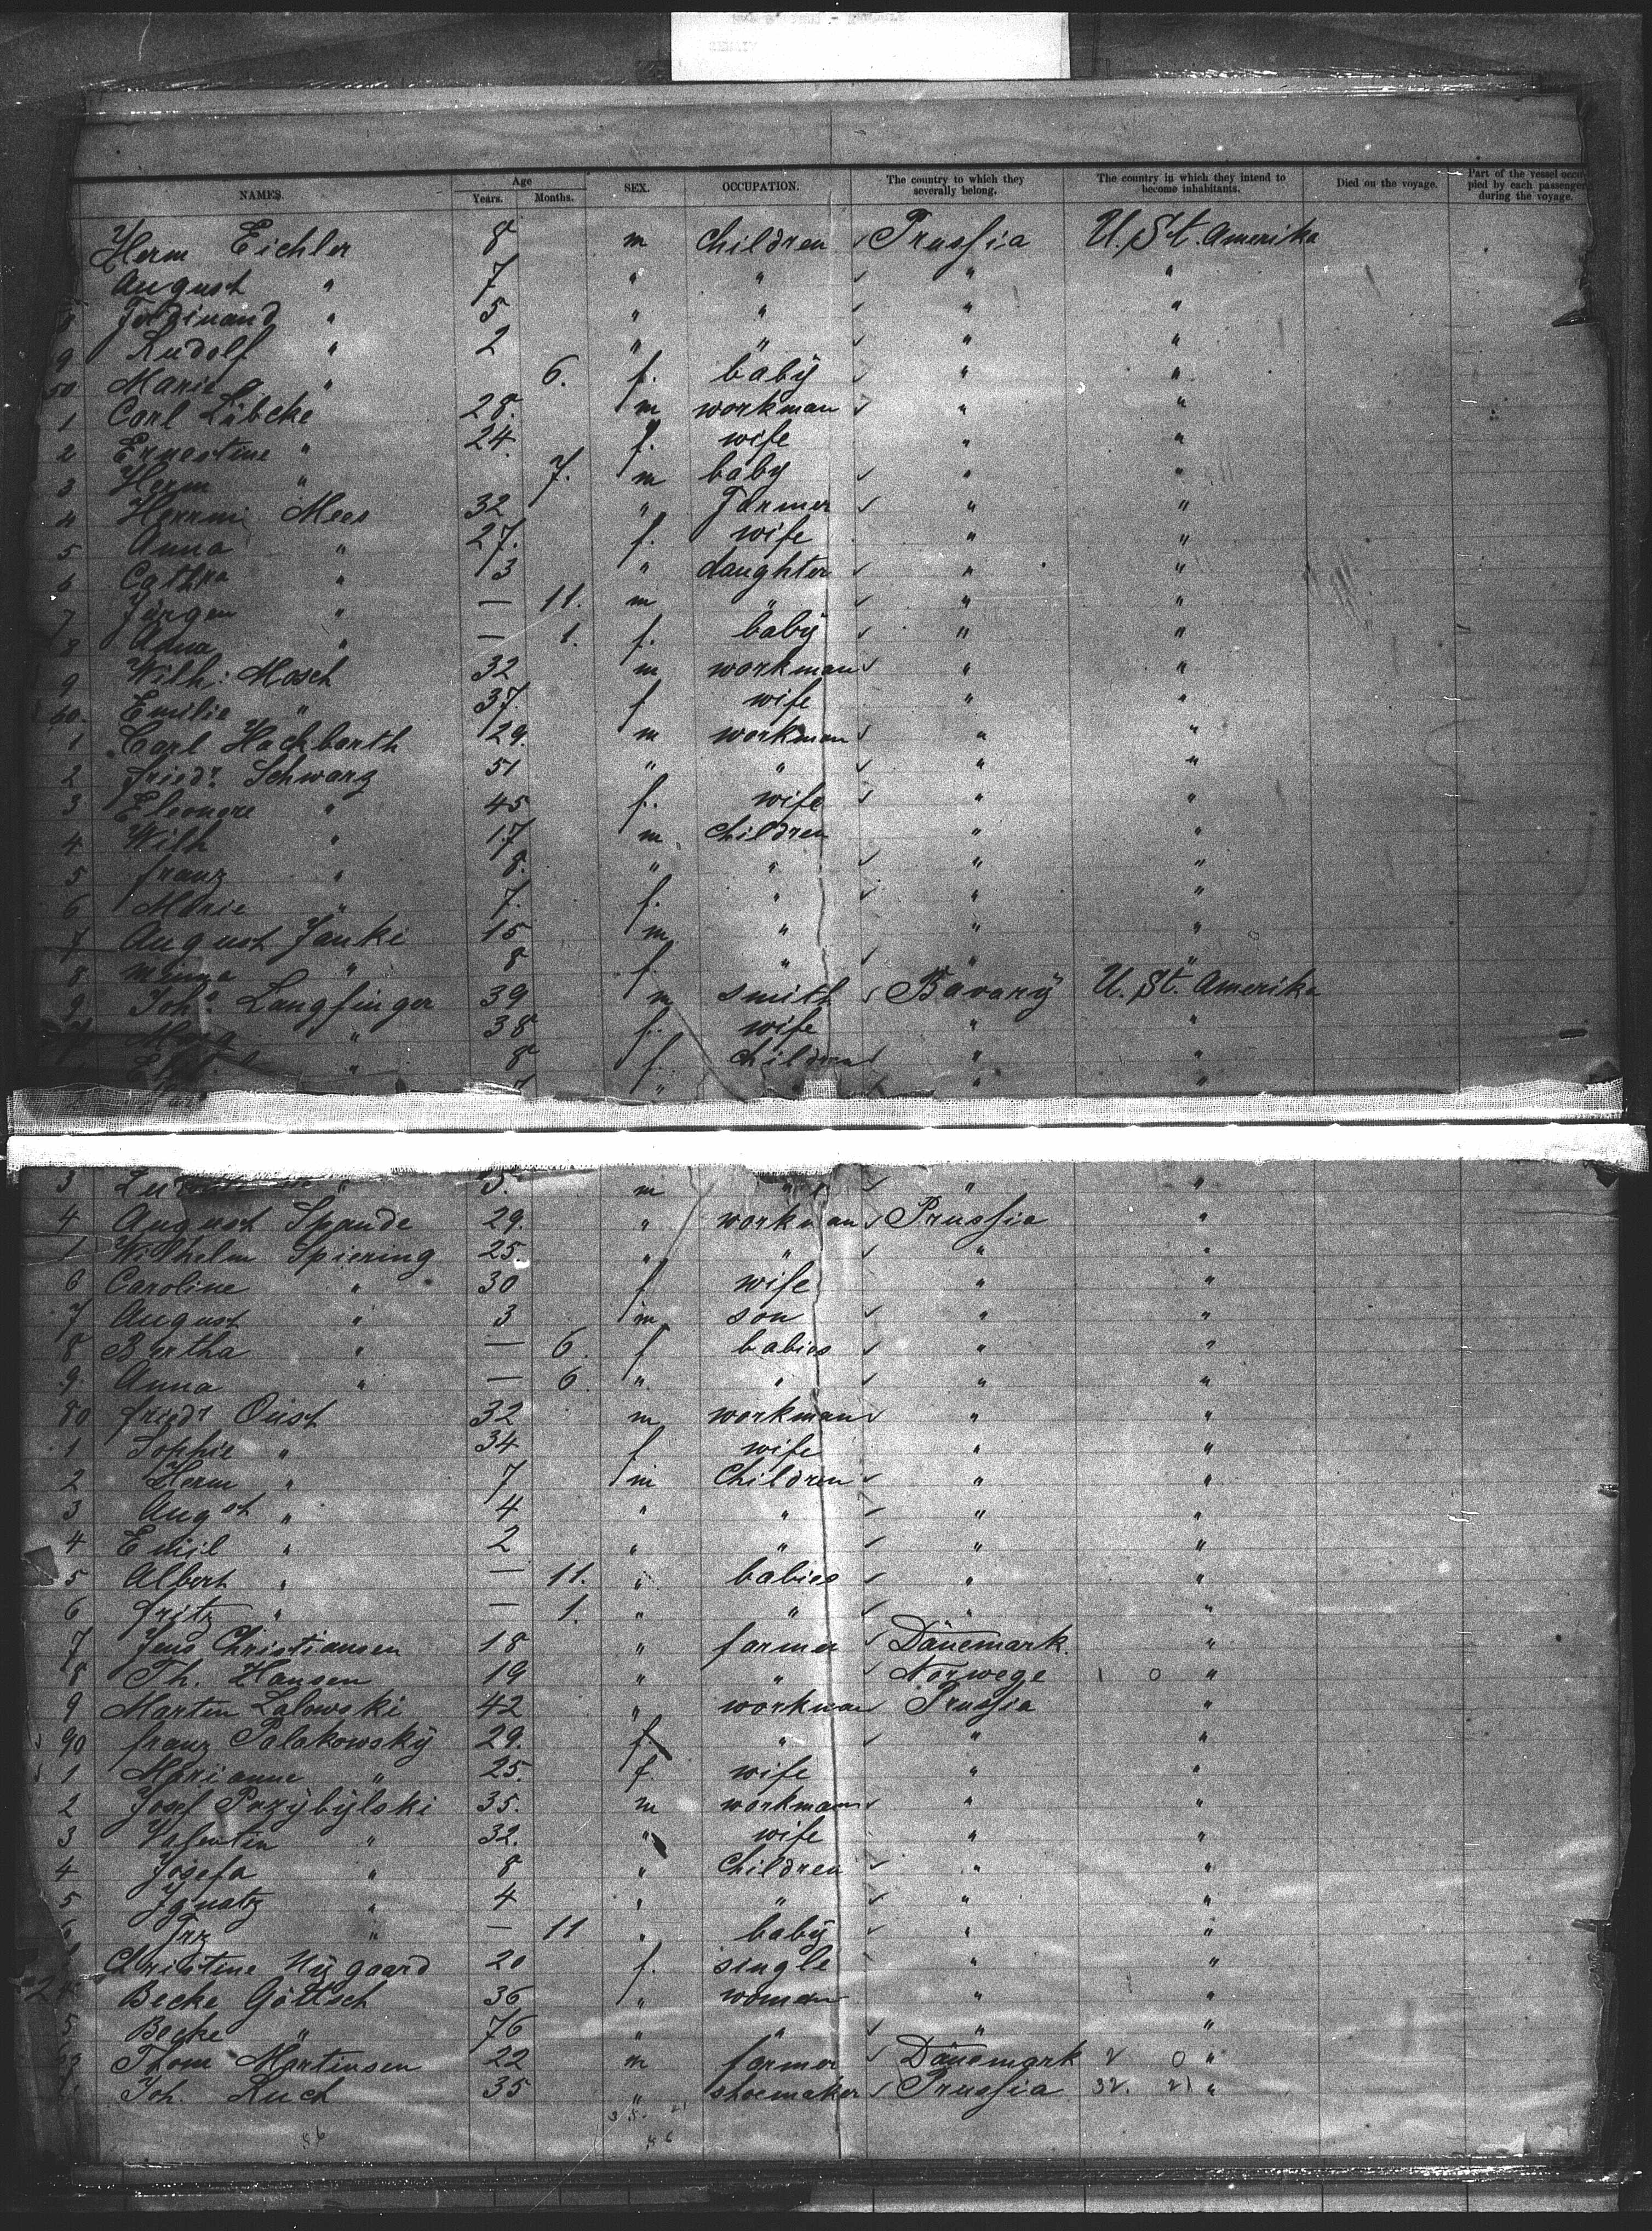 NAMES. Age Years. Months. SEX. OCCUPATION. The country to which they severally belong. The country in which they intend to become inhabitants. Died on the voyage. Part of the vessel occupied by each passenger during the voyage.
Herm Eichler 8 m Children Prussia U. St. Amerika
August " 7 " " " "
8 Ferdinand " 5 " " " "
9 Rudolf " 2 " " " "
50 Marie " 6. f. baby " "
1 Carl Lübcke 28. m workman " "
2 Ernestine " 24. f. wife " "
3 Herm " 7. m baby " "
4 Mees 32 " Farmer " "
5 Anna " 27. f. wife " "
6 Cathra " 3 " daughter " "
7 Jürgen " — 11. m " " "
8 Anna " — 1. f. baby " "
9 Wilh: Mosch 32 m workman " "
60. Emilie " 37 f wife " "
1 Carl Hackbarth 29. m workman " "
2 friedr. Schwarz 51 " " " "
3 Eleonore " 45 f. wife " "
4 Wilh " 17 m Children " "
5 franz " 8. " " " "
6 Marie " 7. f. " " "
7 August Janke 15 m " " "
8 Minna " 8 f. " " "
9 Joh. Langfinger 39 m smith Bavary U. St. Amerika
" 38 f. wife " "
" 8 f. Children " "
" " "
3 5. m " " "
4 August Spande 29. " workman Prussia "
Wilhelm Spiering 25. " " " "
6 Caroline " 30 f wife " "
7 August " 3 m son " "
8 Bertha " — 6. f babies " "
9. Anna " — 6. " " " "
80 friedr Oust 32 m workman " "
1 Sophie " 34 f wife " "
2 Herm " 7 m Children " "
3 Augst " 4 " " " "
4 Emil " 2 " " " "
5 Albert " — 11. " babies " "
6 fritz " — 1. " " " "
7 Jens Christiansen 18 " farmer Dänemark. "
8 Th. Hansen 19 " " Norwege 1 0 "
9 Martin Lalowski 42 " workman Prussia "
90 franz Polakowsky 29. f " " "
1 Marianne " 25. f. wife " "
2 Josef Przybylski 35. m workman " "
3 Valentin " 32. " wife " "
4 Josefa " 8 " Children " "
5 Ignatz " 4 " " " "
6 Frz " — 11 " baby " "
Christine Nygaard 20 f. single " "
Becke Göttsch 36 " woman " "
5 Becke " 76 " " " "
Thom Martensen 22 m farmer Dänemark 2 0 "
Joh. Ruch 35 " shoemaker Prussia 32. 21 "